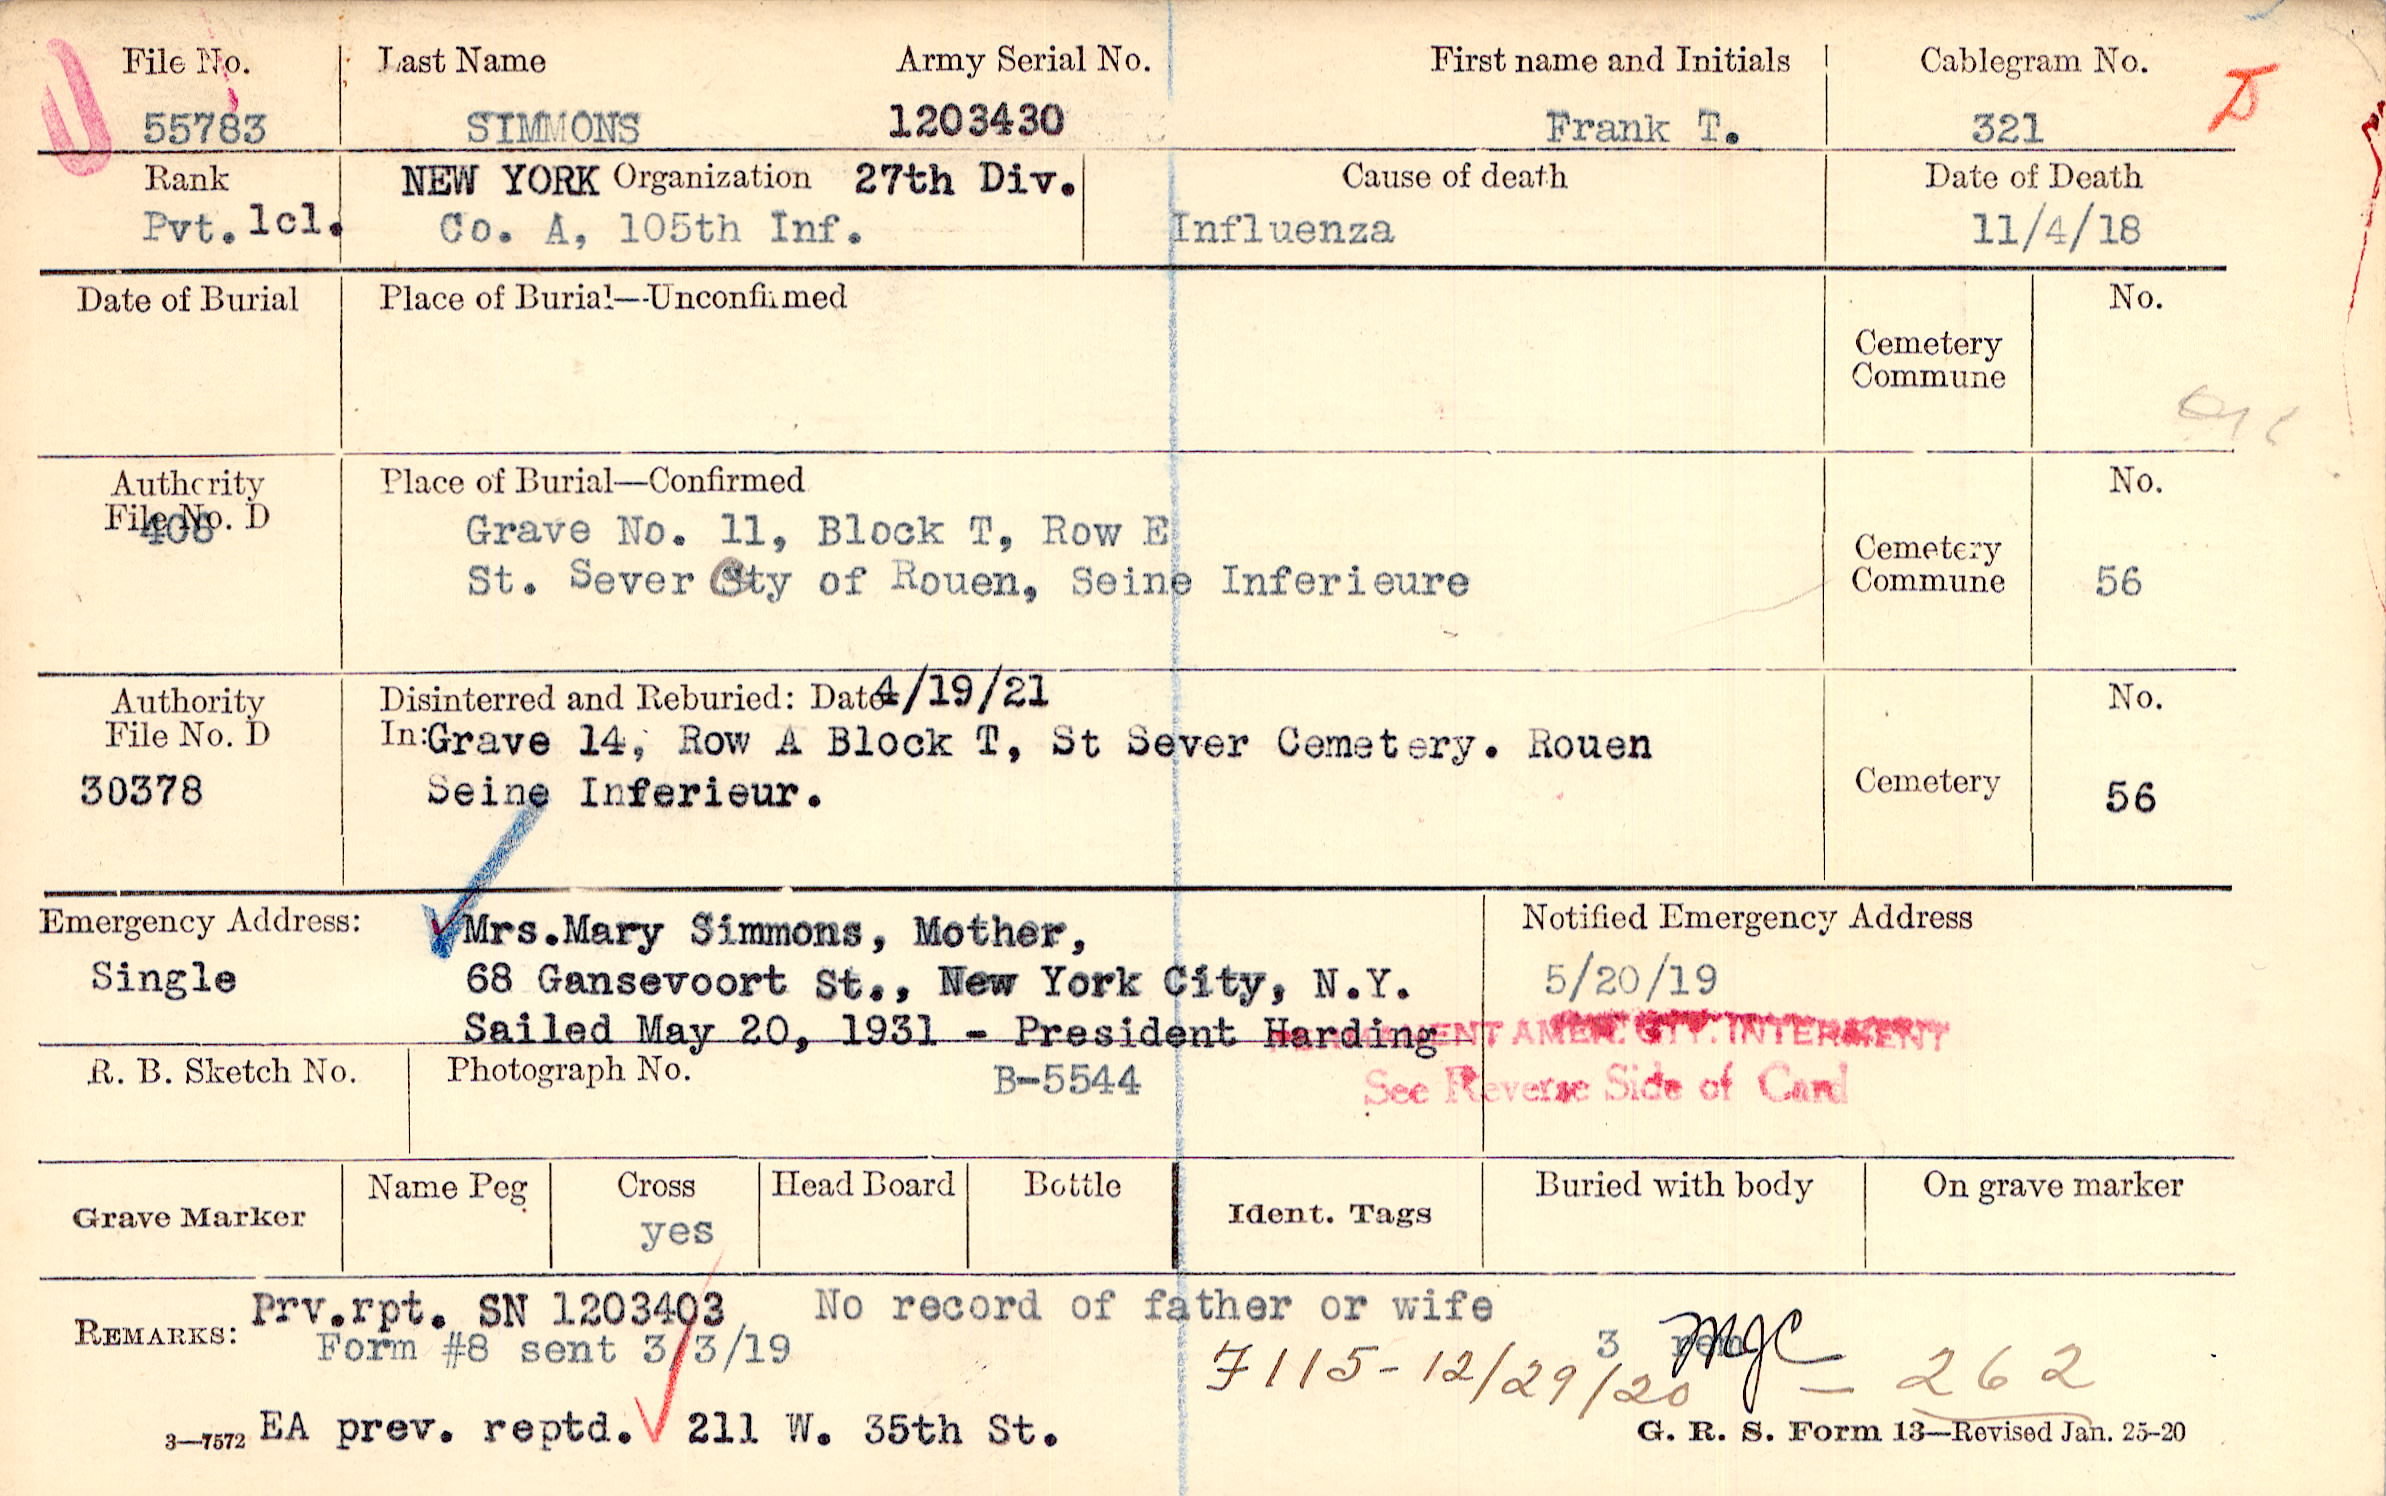 File No. Last Name Army Serial No. First name and Initials Cablegram No.
55783 SIMMONS 1203430 Frank T. 321
Rank NEW YORK Organization 27th Div. Cause of death Date of Death
Pvt. 1cl. Co. A, 105th Inf. Influenza 11/4/18
Date of Burial Place of Burial—Unconfirmed No.
Cemetery
Commune
Authority Place of Burial—Confirmed No.
File No. D
408 Grave No. 11, Block T, Row E
St. Sever Cty of Rouen, Seine Inferieure
Cemetery
Commune 56
Authority Disinterred and Reburied: Date 4/19/21 No.
File No. D In: Grave 14, Row A Block T, St Sever Cemetery. Rouen
30378 Seine Inferieur. Cemetery 56
Emergency Address: Mrs.Mary Simmons, Mother, Notified Emergency Address
Single 68 Gansevoort St., New York City, N.Y. 5/20/19
Sailed May 20, 1931 - President Harding AMER. CTY. INTERMENT
R. B. Sketch No. Photograph No. B-5544 See Reverse Side of Card
Grave Marker Name Peg Cross Head Board Bottle Ident. Tags Buried with body On grave marker
yes
REMARKS: Prv.rpt. SN 1203403 No record of father or wife
Form #8 sent 3/3/19 3 MJC
7115-12/29/20 — 262
3—7572 EA prev. reptd. 211 W. 35th St. G. R. S. Form 13—Revised Jan. 25-20